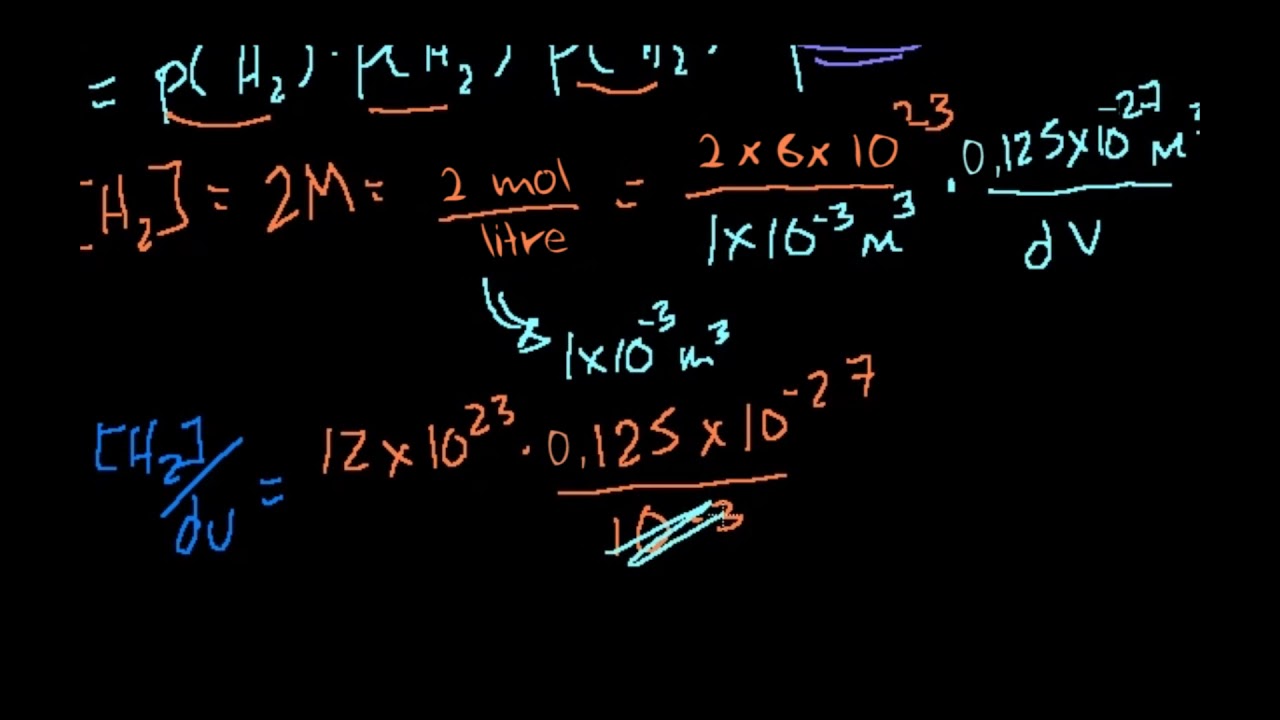 = p(H₂) · p(H₂) p(H₂) · p
[H₂] = 2M = 2 mol / litre = 2 x 6 x 10²³ / 1x10⁻³ m³ · 0,125x10⁻²⁷ M³ / dV
1x10⁻³ m³
[H₂]/dV = 12 x 10²³ · 0,125 x 10⁻²⁷ / 10⁻³